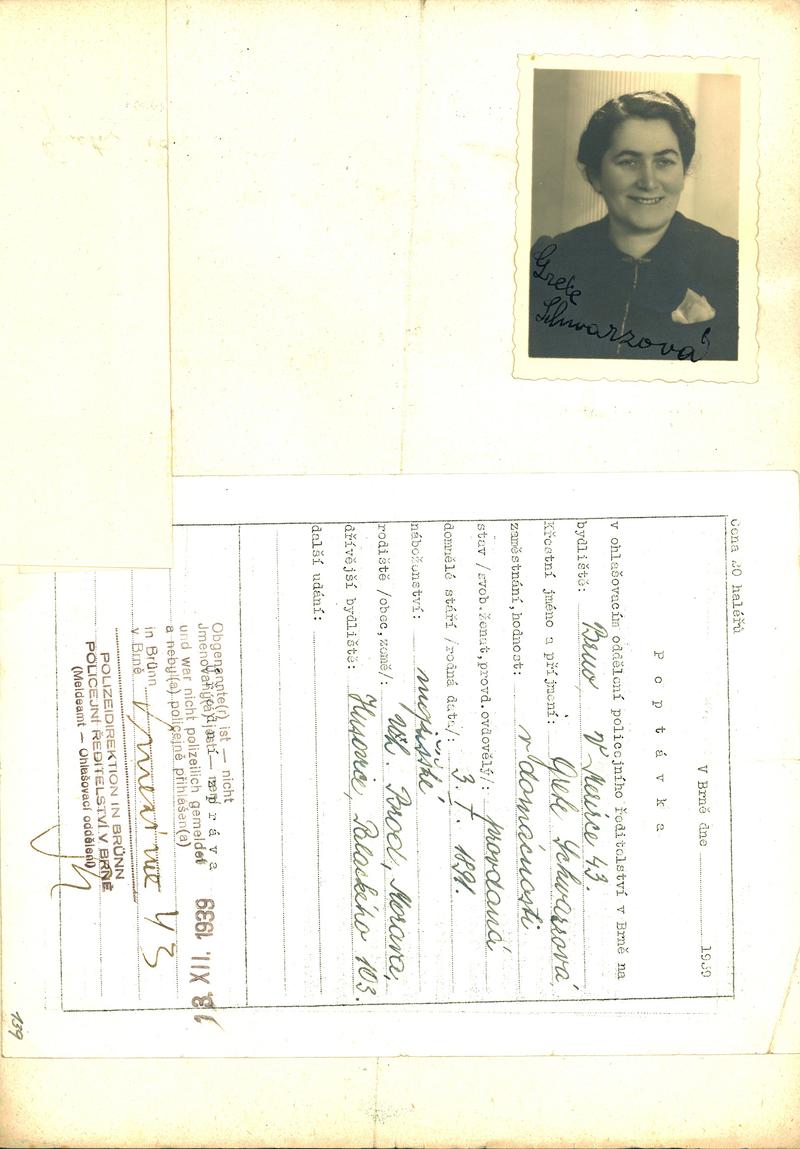 Grete
Schwarzová
Cena 20 haléřů
V Brně dne 1939
poptávka
v ohlašovacím oddělení policejního ředitelství v Brně na
bydliště: Brno, V
43.
Křestní jméno a příjmení: Schwarzová,
zaměstnání,hodnost: v domácnosti
stav /svob.ženat,provd.ovdovělý/: provdaná
domnělé stáří /rodná data/: 3. 1891.
náboženství: mojžíšské
rodiště /obec,země/: Uh. Brod, Morava,
dřívější bydliště: Husovice, Palackého 103.
další udání:
zpráva
Obgenannte(r) ist — nicht
Jmenovaný(á) jest —
und war nicht polizeilich gemeldet
a nebyl(a) policejně přihlášen(a)
18. XII. 1939
in Brünn
v Brně
43
POLIZEIDIREKTION IN BRÜNN
POLICEJNÍ ŘEDITELSTVÍ V BRNĚ
(Meldeamt — Ohlašovací oddělení)
139